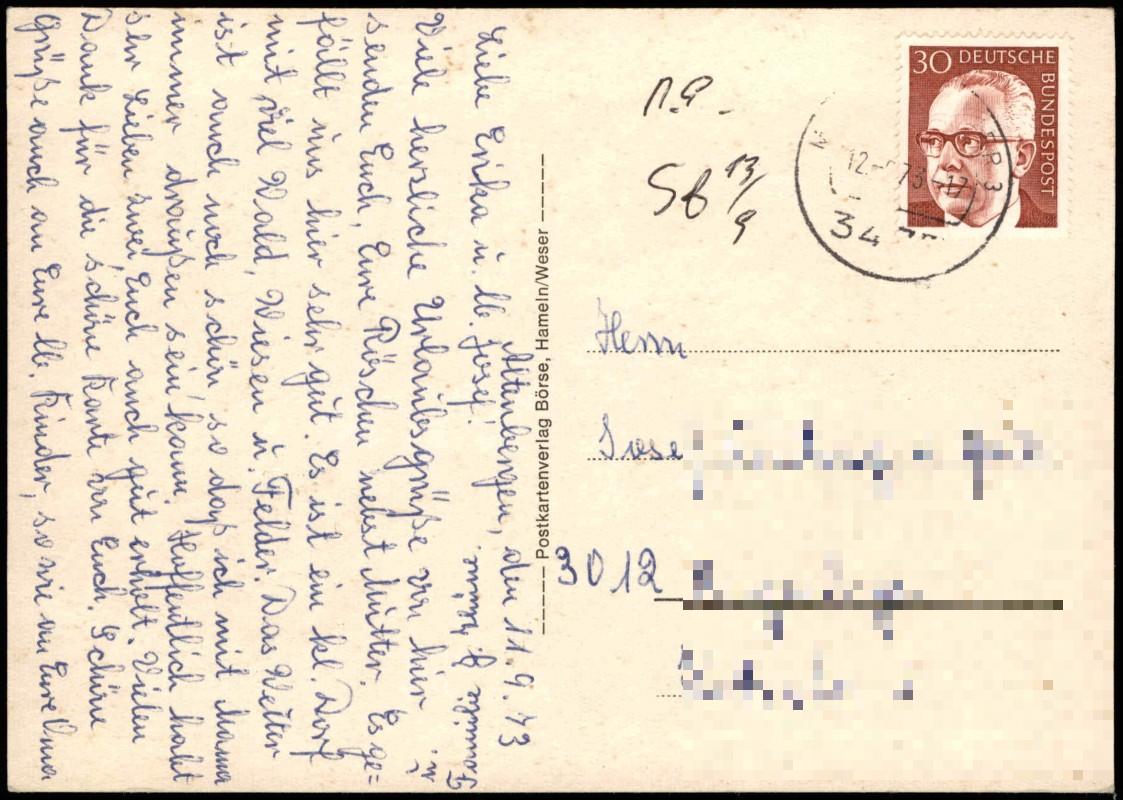 Altenbergen, den 11.9.73
Liebe Erika u. lb. Josef!
Viele herzliche Urlaubsgrüße von hier
senden Euch, Eure Röschen nebst Mutter. Es ge-
fällt uns hier sehr gut. Es ist ein kl. Dorf
mit viel Wald, Wiesen u. Felder. Das Wetter
ist auch noch schön, so daß ich mit Mama
immer draußen sein kann. Hoffentlich habt
Ihr Lieben zwei Euch auch gut erholt. Vielen
Dank für die schöne Karte von Euch. Schöne
Grüße auch an Eure lb. Kinder, so wie an Eure Oma
u.
Familie
Postkartenverlag Börse, Hameln/Weser
30 DEUTSCHE
BUNDESPOST
12.- 73-17
34
13/9
Herrn
Jose
3012